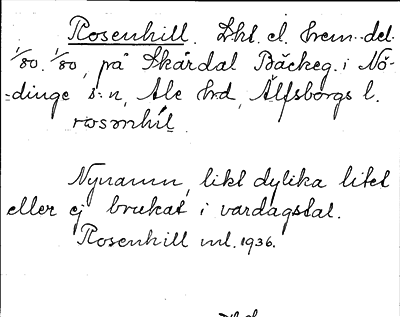 Rosenhill. Lht. el. hem.del.
1/80. 1/80, på Skårdal Bäckeg. i Nö-
dinge s:n, Ale hrd, Älfsborgs l.
rosenhil
Nynamn, likt dylika litet
eller ej brukat i vardagstal.
Rosenhill ml. 1936.